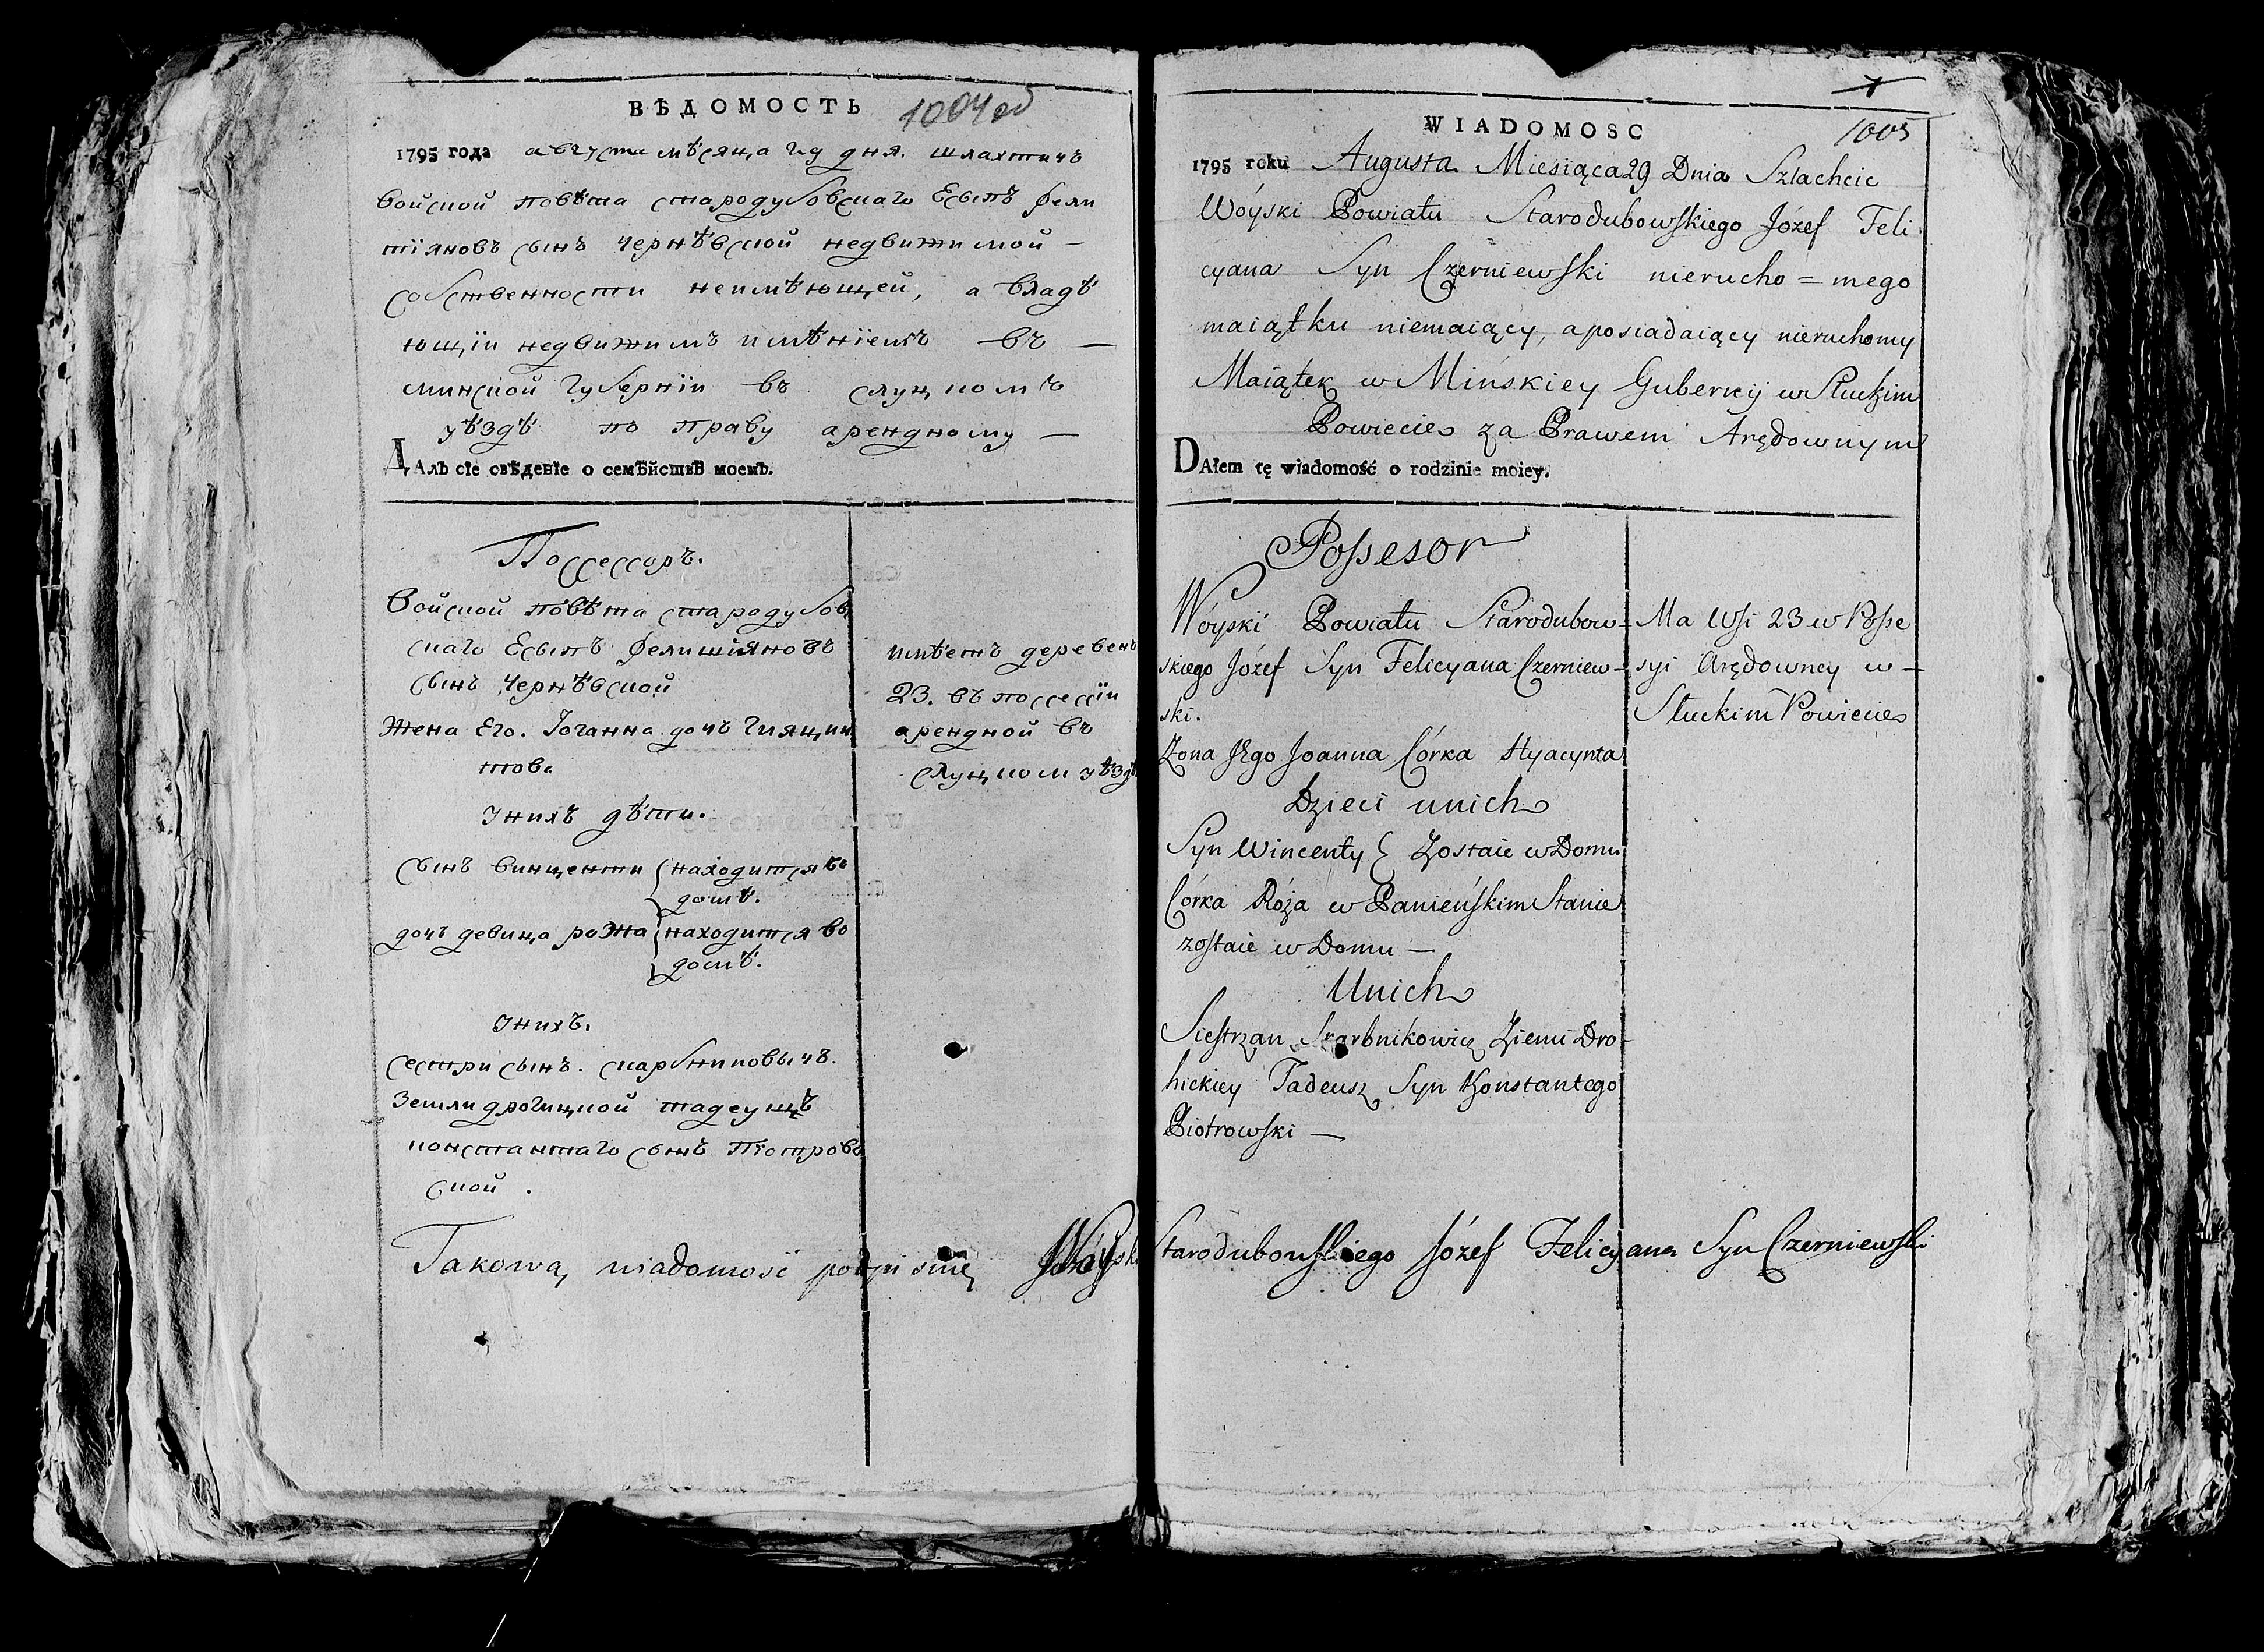 ВѢДОМОСТЬ 1004об
1795 года августа мѣсяца 29 дня. шляхтичъ
войской повѣта стародубовскаго Есыпъ фели
ціяновъ сынъ чернѣвской недвижимой —
собственности неимѣющей, а владѣ
ющiи недвижимъ имѣнiемъ въ —
минской губернiи въ слуцкомъ
уѣздѣ по праву арендному —
ДАлЪ сiе свѣденiе о семѣйствѣ моемъ.
Поссессоръ.
Войской повѣта стародубов
скаго Есыпъ фелицiяновъ
сынъ чернѣвской
Жена Его. Iоганна дочъ гияцин
това
Унихъ дѣти.
сынъ винценти находится во
домѣ.
дочъ девица рожа находится во
домѣ.
Унихъ.
сестри сынъ. скарбниковычъ.
Земли дрогицкой тадеушъ
константаго сынъ Пiотров
ской .
имѣетъ деревенъ
23. въ поссесiи
арендной въ
слуцком уѣздѣ
Takową wiadomość podpisuię Woyski Starodubowskiego Józef Felicyana Syn Czerniewski
WIADOMOSC
1005
1795 roku Augusta Miesiąca 29 Dnia Szlachcic
Wóyski Powiatu Starodubowskiego Józef Feli
cyana Syn Czerniewski nierucho = mego
maiątku niemaiący, a posiadaiący nieruchomy
Maiątek w Mińskiey Gubernij w Słuckim
Powiecie za Prawem Arędownym
DAłem tę wiadomość o rodzinie moiey.
Possesor
Wóyski Powiatu Starodubow-
skiego Józef Syn Felicyana Czerniew-
ski.
Zona Jego Joanna Córka Hyacynta
Dzieci unich
Syn Wincenty Zostaie w Domu
Córka Róża w Panieńskim Stanie
zostaie w Domu —
Unich
Siestrzan Skarbnikowicz Ziemi Dro-
hickiey Tadeusz Syn Konstantego
Piotrowski —
Ma Wsi 23 w Posse
syi Arędowney w —
Słuckim Powiecie